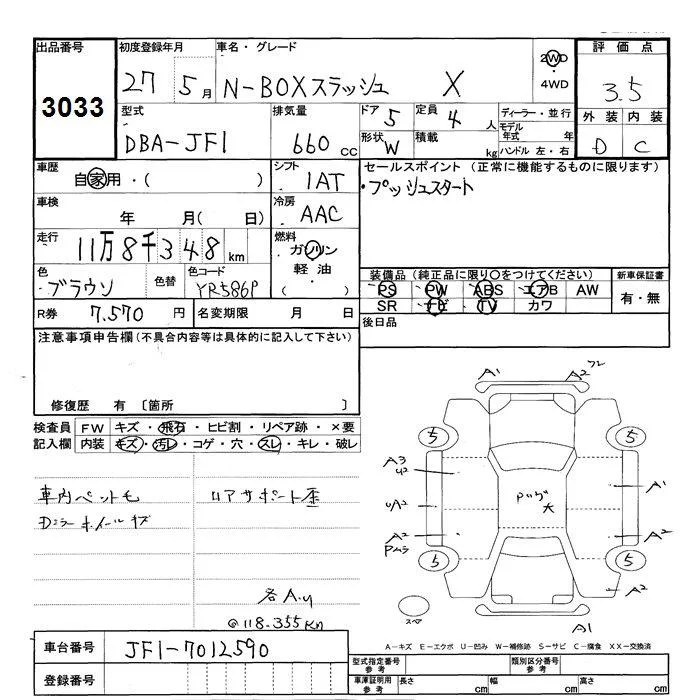 出品番号 初度登録年月 車名・グレード 2WD ・ 4WD 評価点
3033 27 5月 N-BOXスラッシュ X 3.5
型式 排気量 ドア 5 定員 4 人 ディーラー・並行 外装 内装
DBA-JF1 660 cc 形状 W 積載 kg モデル年式 年 D C
ハンドル 左・右
車歴 自家用・( ) シフト 1AT セールスポイント (正常に機能するものに限ります)
車検 年 月( 日) 冷房 AAC ・プッシュスタート
走行 11万8千348 km 燃料 ガソリン 軽油・( )
色 ブラウン 色替 色コード YR586P 装備品(純正品に限り〇をつけてください) 新車保証書
PS PW ABS エアB AW 有・無
SR ナビ TV カワ
R券 7.570 円 名変期限 月 日 後日品
注意事項申告欄(不具合内容等は具体的に記入して下さい)
修復歴 有 [箇所 ]
検査員記入欄 FW キズ・飛石・ヒビ割・リペア跡・×要
内装 キズ・汚レ・コゲ・穴・スレ・キレ・破レ
車内ペット毛 リアサポート歪
Dミラー ホイールキズ
各A.U
@118.355Km
A1 A2
5 5
A3 U2
A1
UA2
A2 A2
5 5
A2
スペア
A1
A-キズ E-エクボ U-凹み W-補修跡 S-サビ C-腐食 XX-交換済
車台番号 JF1-7012590
登録番号
型式指定番号 参考 類別区分番号 参考
車庫証明用 参考 長さ cm 幅 cm 高さ cm